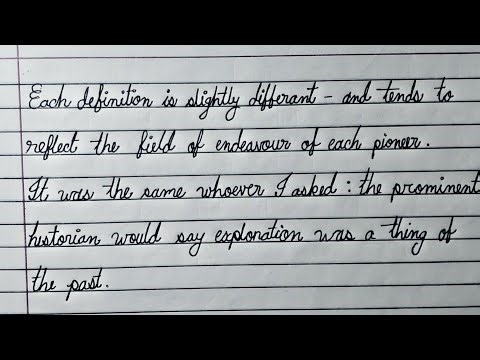 Each definition is slightly differant - and tends to
reflect the field of endeavour of each pioneer.
It was the same whoever I asked : the prominent
historian would say exploration was a thing of
the past.